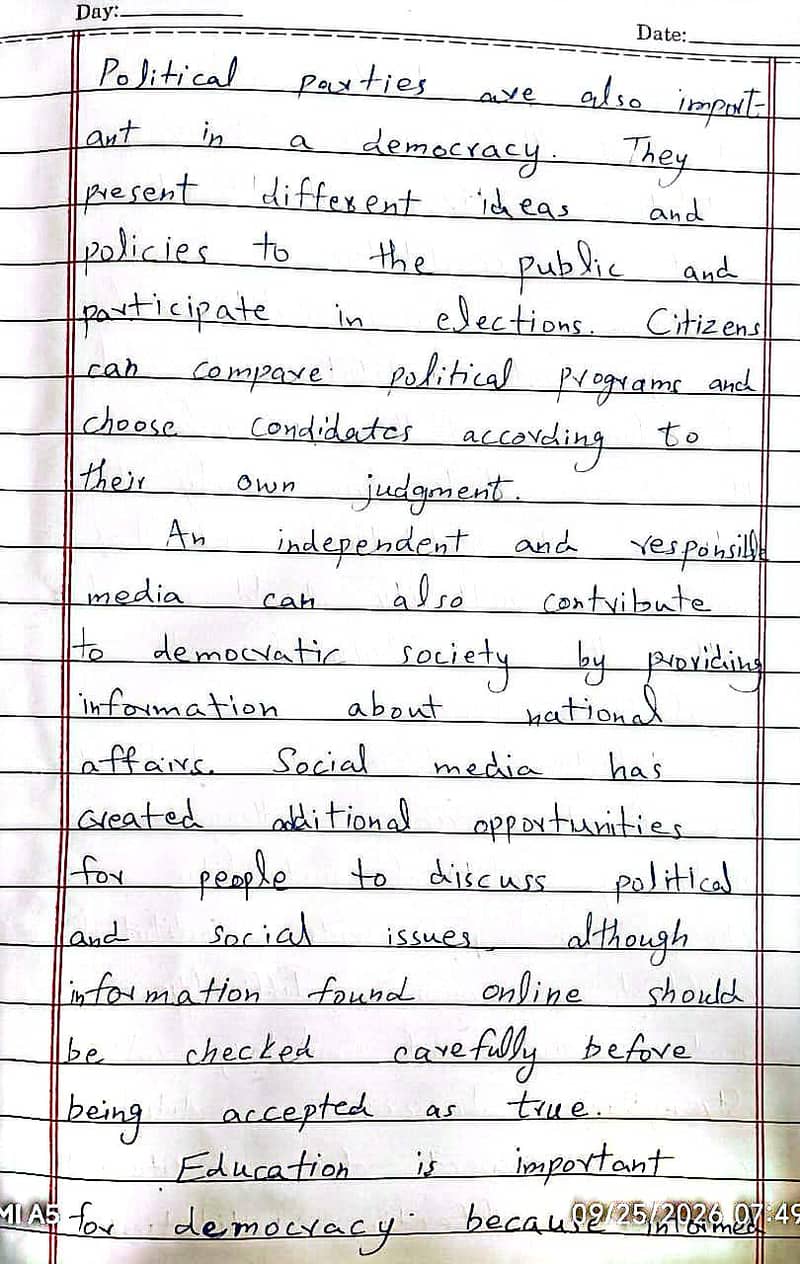 Day:
Date:
Political parties are also import-
ant in a democracy. They
present different ideas and
policies to the public and
participate in elections. Citizens
can compare political programs and
choose condidates according to
their own judgment.
An independent and responsible
media can also contribute
to democratic society by providing
information about national
affairs. Social media has
created additional opportunities
for people to discuss political
and social issues although
information found online should
be checked carefully before
being accepted as true.
Education is important
for democracy because informed
MI A5
09/25/2026 07:49